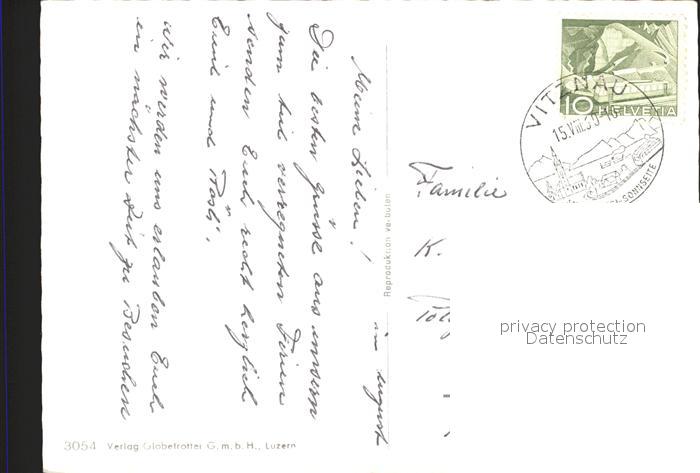 Meine Lieben!
im August
Die besten Grüsse aus unsern
zum teil verregneten Ferien
senden Euch recht herzlich
Emil und Rösli.
Wir werden uns erlauben Euch
in nächster Zeit zu Besuchen
Reproduktion verboten
10 HELVETIA
VITZNAU
15.VIII.50-16
SONNSEITE
Familie
K.
privacy protection
Datenschutz
3054 Verlag Globetrotter G. m. b. H., Luzern